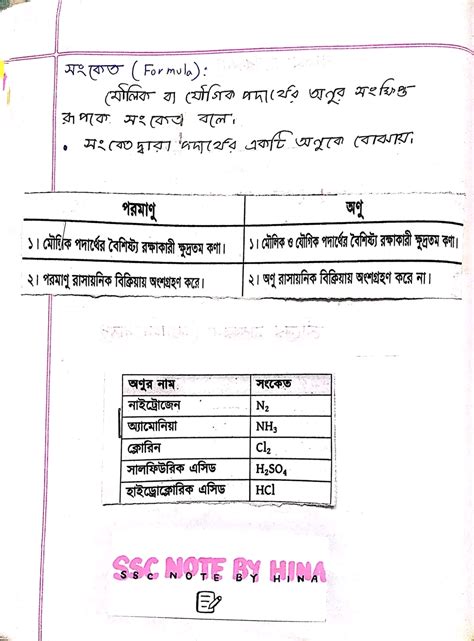 সংকেত (Formula):
মৌলিক বা যৌগিক পদার্থের অনুর সংক্ষিপ্ত
রূপকে সংকেত বলে।
• সংকেত দ্বারা পদার্থের একটি অনুকে বোঝায়।
পরমাণু | অণু
১। মৌলিক পদার্থের বৈশিষ্ট্য রক্ষাকারী ক্ষুদ্রতম কণা। | ১। মৌলিক ও যৌগিক পদার্থের বৈশিষ্ট্য রক্ষাকারী ক্ষুদ্রতম কণা।
২। পরমাণু রাসায়নিক বিক্রিয়ায় অংশগ্রহণ করে। | ২। অণু রাসায়নিক বিক্রিয়ায় অংশগ্রহণ করে না।
অণুর নাম | সংকেত
নাইট্রোজেন | N₂
অ্যামোনিয়া | NH₃
ক্লোরিন | Cl₂
সালফিউরিক এসিড | H₂SO₄
হাইড্রোক্লোরিক এসিড | HCl
SSC NOTE BY HINA
SSC NOTE BY HINA